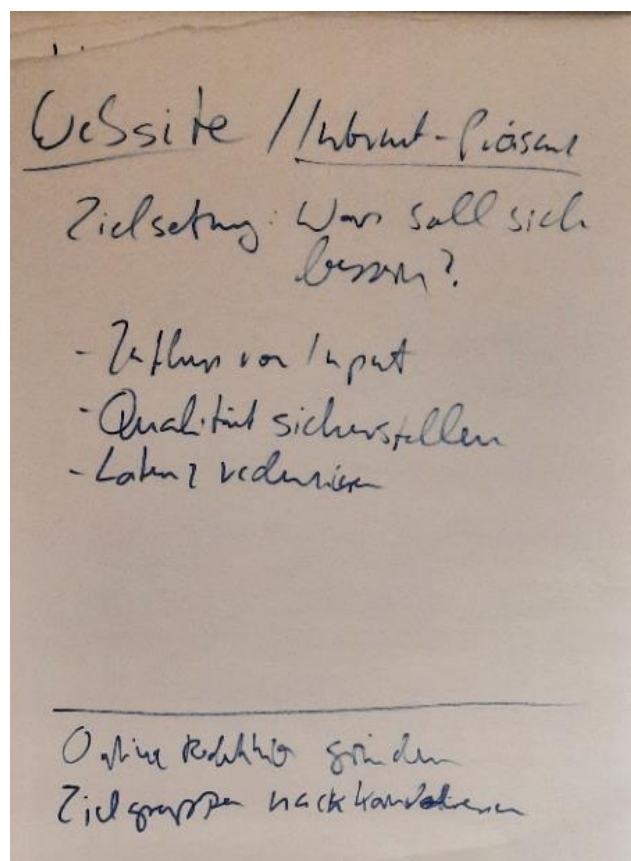 Website / Internet-Präsenz
Zielsetzung: Was soll sich
bessern?
- Zufluss von Input
- Qualität sicherstellen
- Latenz reduzieren
Online Redaktion gründen
Zielgruppen